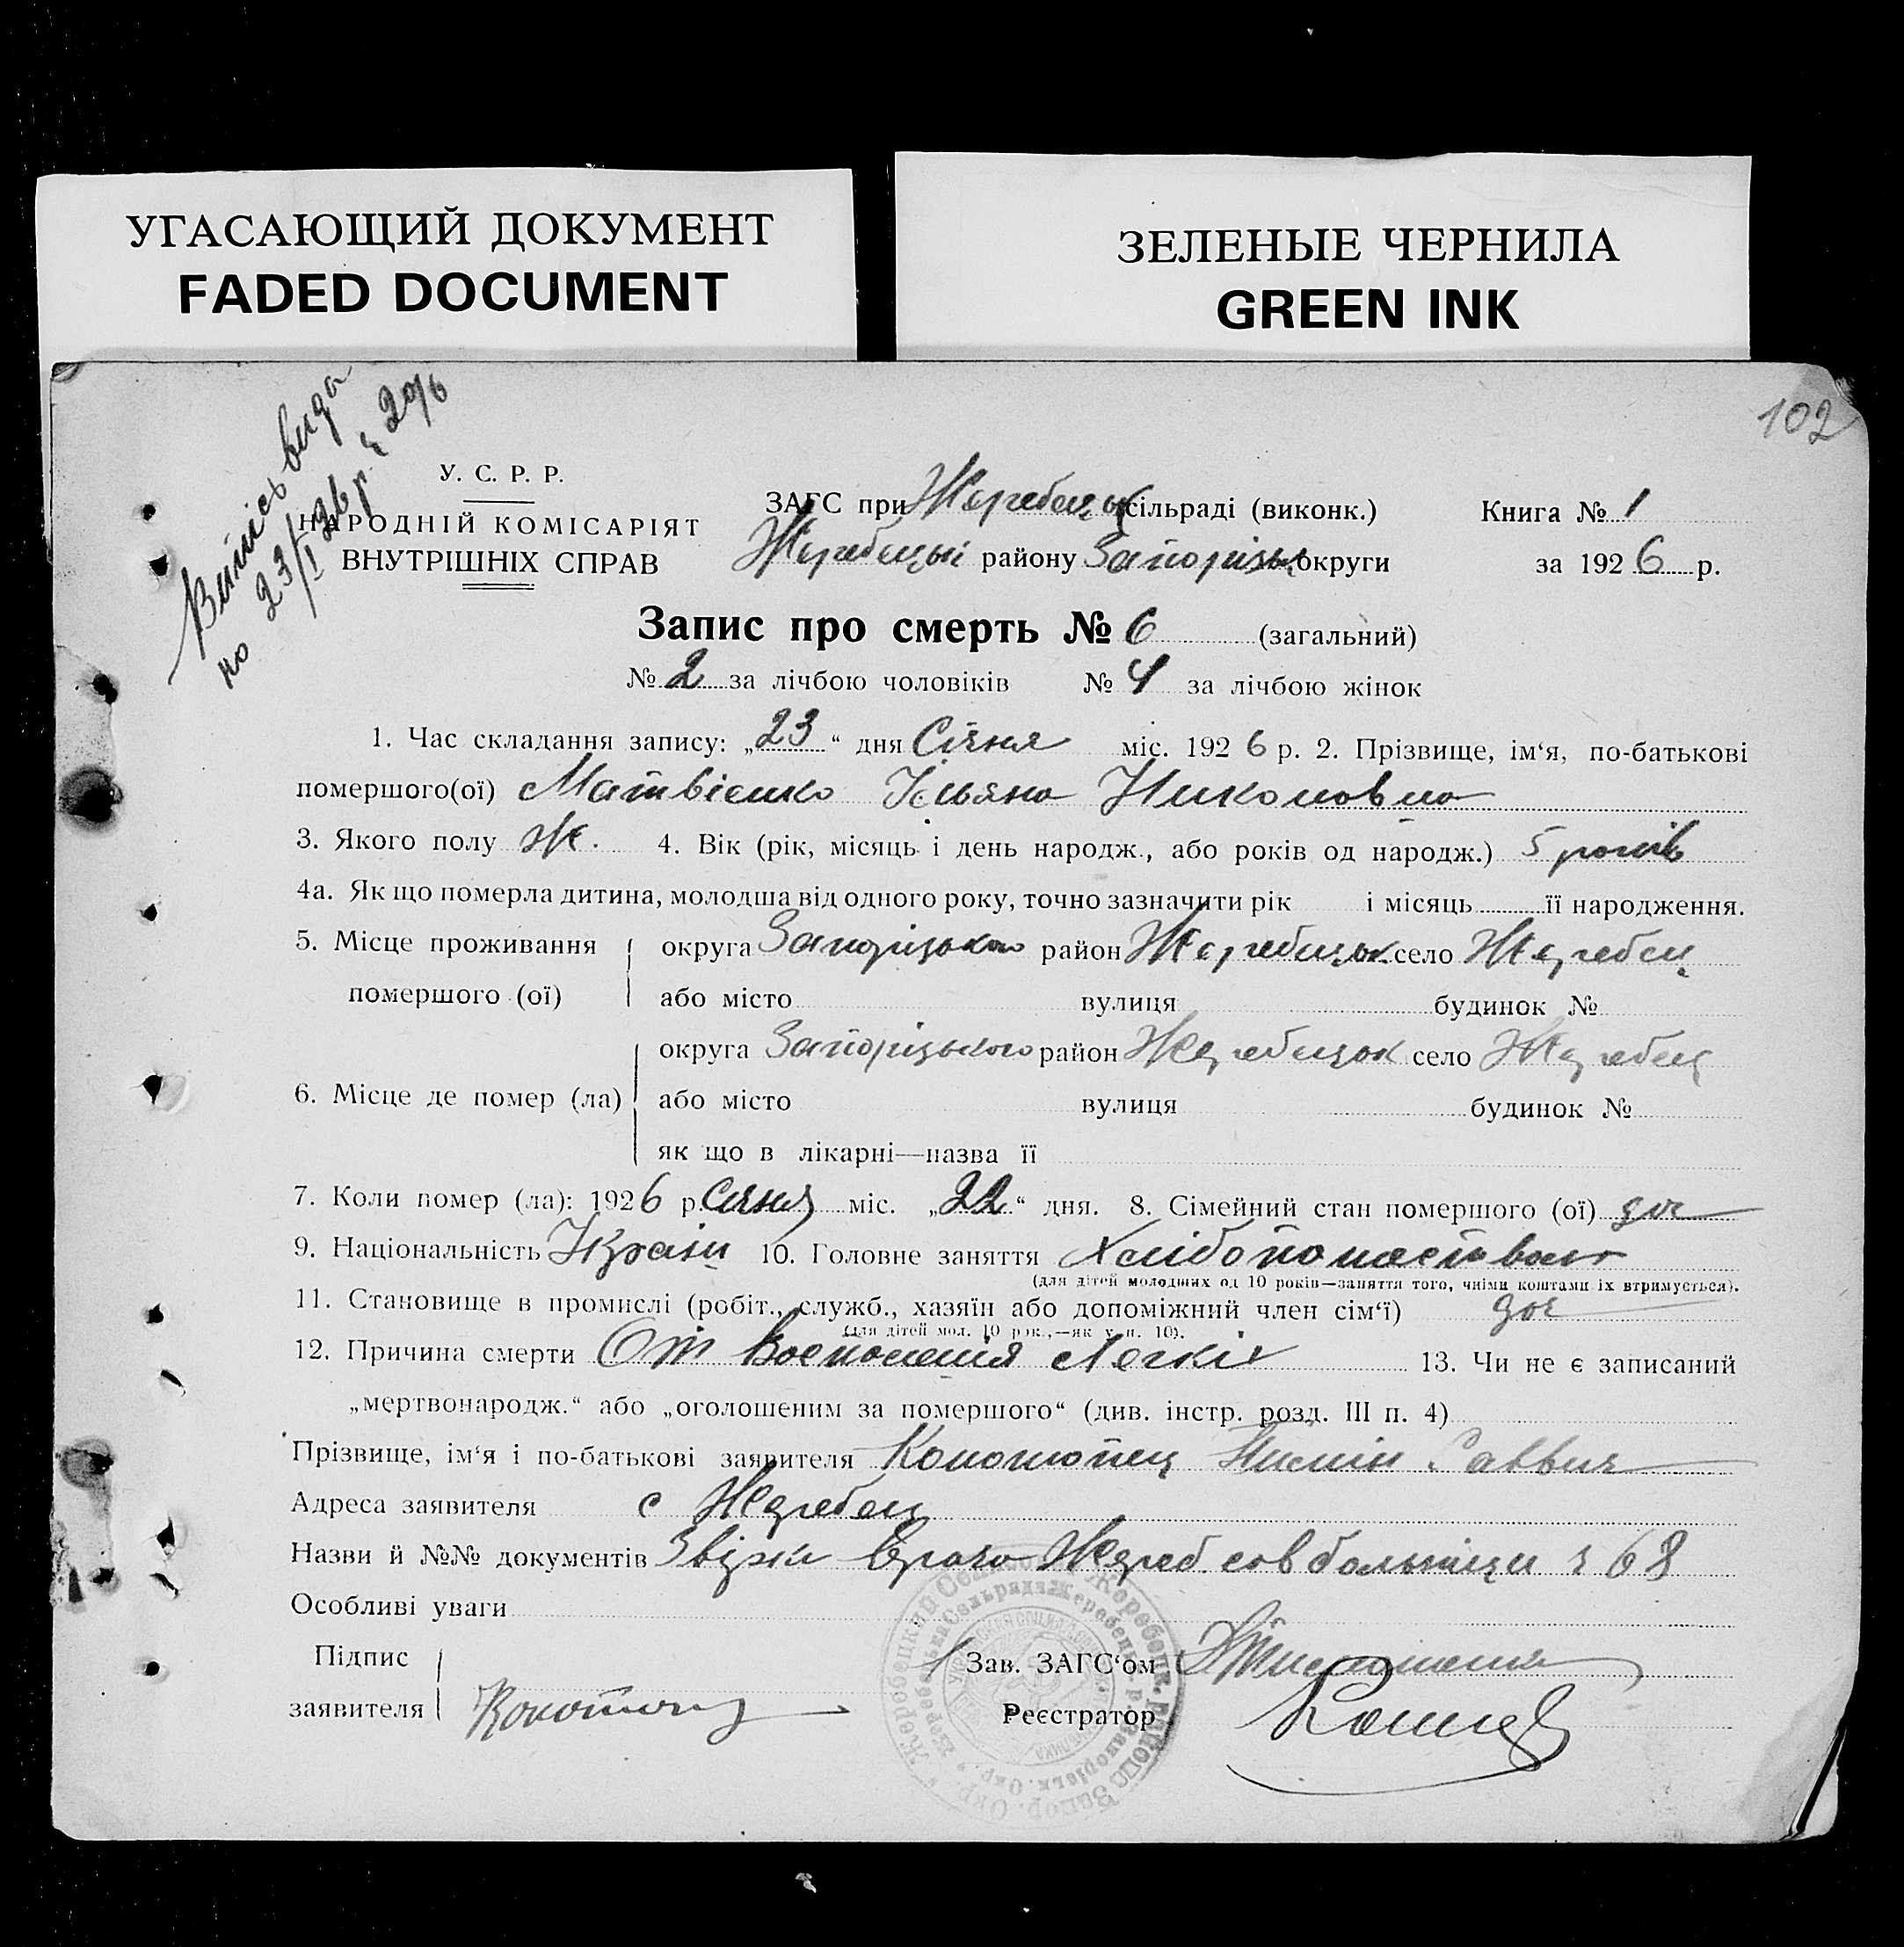 УГАСАЮЩИЙ ДОКУМЕНТ
FADED DOCUMENT
ЗЕЛЕНЫЕ ЧЕРНИЛА
GREEN INK
102
Випись вида
но 23/I 26 р. ч 20/6
У. С. Р. Р.
НАРОДНІЙ КОМІСАРІЯТ
ВНУТРІШНІХ СПРАВ
ЗАГС при Жеребецьк сільраді (виконк.)
Жеребецькі району Запорізьк округи
Книга № 1
за 1926 р.
Запис про смерть № 6 (загальний)
№ 2 за лічбою чоловіків № 4 за лічбою жінок
1. Час складання запису: „23“ дня Січня міс. 1926 р. 2. Прізвище, ім‘я, по-батькові
помершого(ої) Матвієнко Ульяна Никоновна
3. Якого полу Ж. 4. Вік (рік, місяць і день народж., або років од народж.) 5 років
4а. Як що померла дитина, молодша від одного року, точно зазначити рік і місяць її народження.
5. Місце проживання помершого (ої)
округа Запорізького район Жеребецьк село Жеребец
або місто вулиця будинок №
6. Місце де помер (ла)
округа Запорізького район Жеребецьк село Жеребец
або місто вулиця будинок №
як що в лікарні—назва її
7. Коли помер (ла): 1926 р. Січня міс. „22“ дня. 8. Сімейний стан помершого (ої)
9. Національність Україн 10. Головне заняття Хлібопашество
(для дітей молодших од 10 років—заняття того, чиїми коштами їх втримується).
11. Становище в промислі (робіт., служб., хазяїн або допоміжний член сім‘ї)
(для дітей мол. 10 рок.,—як у п. 10).
12. Причина смерти От Восполения Легких 13. Чи не є записаний
„мертвонародж.“ або „оголошеним за помершого“ (див. інстр. розд. III п. 4)
Прізвище, ім‘я і по-батькові заявителя Конотопец Саввич
Адреса заявителя с Жеребец
Назви й №№ документів Звізки Врача Жереб. сов больници ч 68
Особливі уваги
Підпис
заявителя Конотопец
Зав. ЗАГС‘ом
Реєстратор